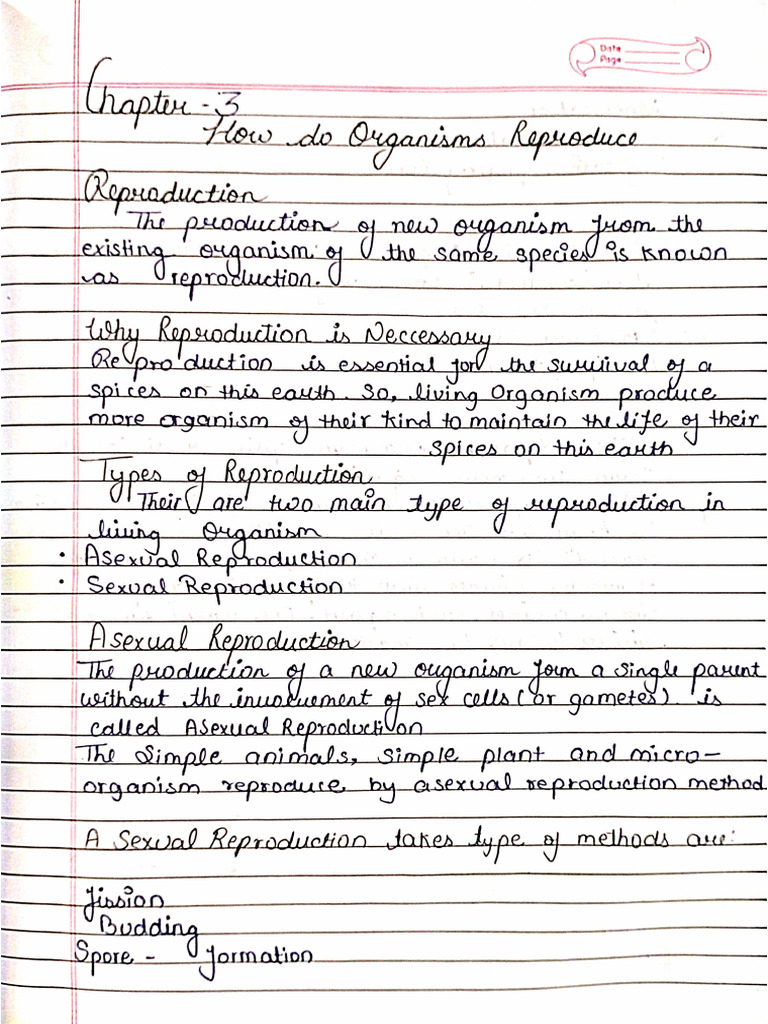 Date
Page
Chapter - 3
How do Organisms Reproduce
Reproduction
The production of new organism from the
existing organism of the same species is known
as reproduction.
Why Reproduction is Neccessary
Reproduction is essential for the survival of a
spices on this earth. So, living Organism produce
more organism of their kind to maintain the life of their
spices on this earth
Types of Reproduction
Their are two main type of reproduction in
living Organism
• Asexual Reproduction
• Sexual Reproduction
Asexual Reproduction
The production of a new organism form a single parent
without the involvement of sex cells (or gametes) is
called Asexual Reproduction
The Simple animals, simple plant and micro-
organism reproduce by asexual reproduction method
A Sexual Reproduction takes type of methods are:
fission
Budding
Spore - formation